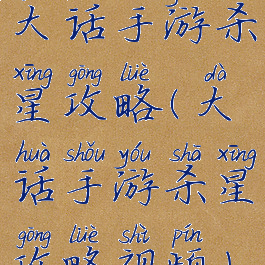 大话手游杀
xīng gōng lüè dà
星攻略(大
huà shǒu yóu shā xīng
话手游杀星
gōng lüè shì pín
攻略视频)